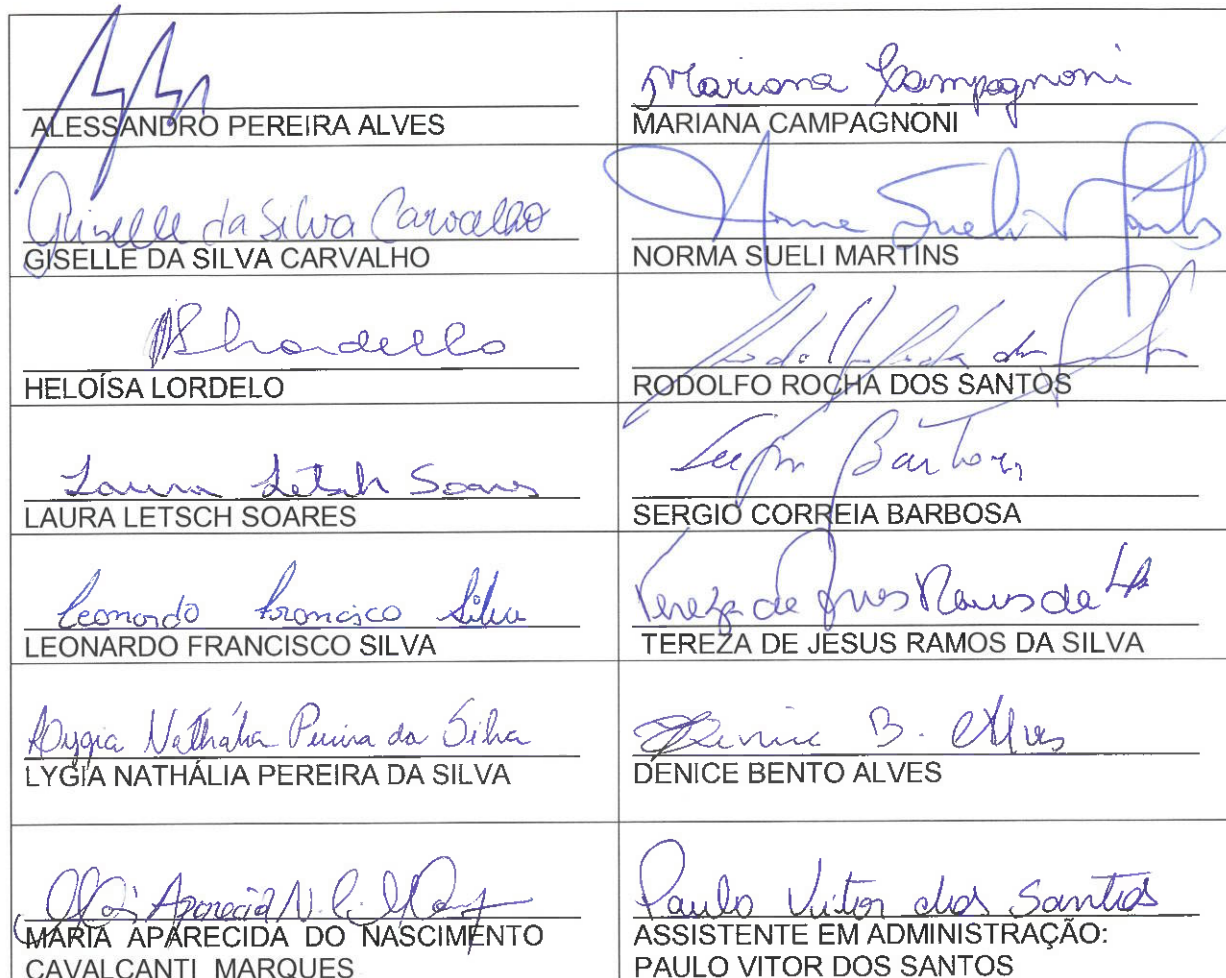 ALESSANDRO PEREIRA ALVES
Mariana Campagnoni
MARIANA CAMPAGNONI
Giselle da Silva Carvalho
GISELLE DA SILVA CARVALHO
Sueli
NORMA SUELI MARTINS
HELOÍSA LORDELO
RODOLFO ROCHA DOS SANTOS
Laura Letsch Soares
LAURA LETSCH SOARES
SERGIO CORREIA BARBOSA
Leonardo Francisco Silva
LEONARDO FRANCISCO SILVA
Tereza de Jesus Ramos da
TEREZA DE JESUS RAMOS DA SILVA
Lygia Nathália Pereira da Silva
LYGIA NATHÁLIA PEREIRA DA SILVA
Denice B. Alves
DENICE BENTO ALVES
Aparecida N. C.
MARIA APARECIDA DO NASCIMENTO
CAVALCANTI MARQUES
Paulo Vitor dos Santos
ASSISTENTE EM ADMINISTRAÇÃO:
PAULO VITOR DOS SANTOS